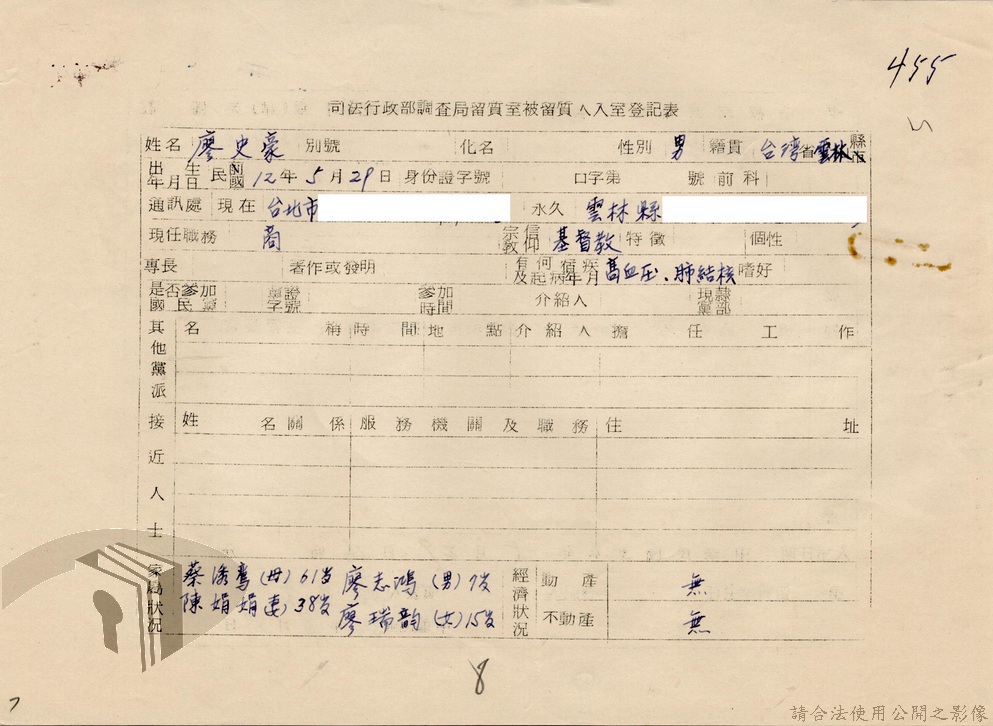 455
司法行政部調查局留質室被留質人入室登記表
姓名 廖史豪 別號 化名 性別 男 籍貫 台灣省雲林縣市
出生年月日 民國12年5月29日 身份證字號 口字第 號 前科
通訊處 現在 台北市 永久 雲林縣
現任職務 商 宗教信仰 基督教 特徵 個性
專長 著作或發明 有何宿疾及起病年月 高血压、肺結核 嗜好
是否參加國民黨 黨證字號 參加時間 介紹人 現隸黨部
其他黨派 名稱 時間 地點 介紹人 擔任工作
接近人士 姓名 關係 服務機關及職務 住址
家屬狀況 蔡 鴦(母)61岁 廖志鴻(男)7岁 經濟狀況 動產 無
陳娟娟妻38岁 廖瑞韵(女)15岁 不動產 無
8
7
請合法使用公開之影像